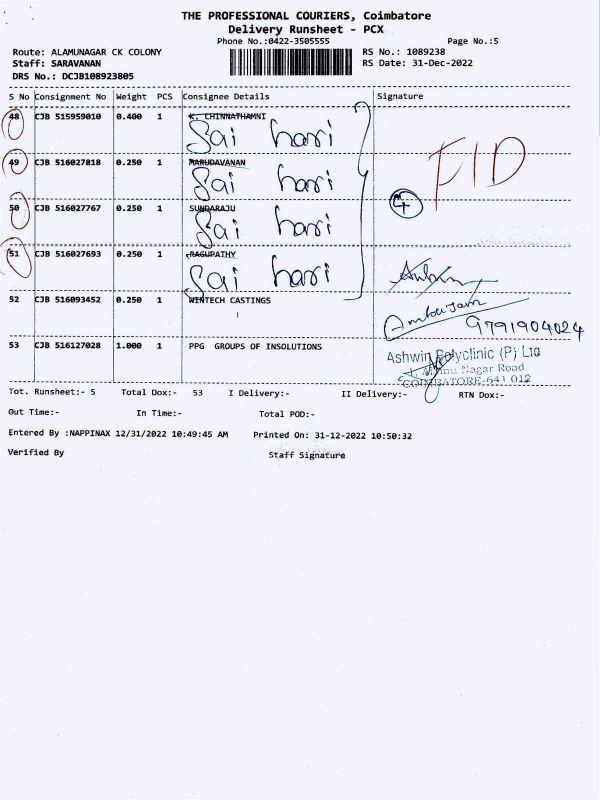 THE PROFESSIONAL COURIERS, Coimbatore
Delivery Runsheet - PCX
Phone No.:0422-3505555 Page No.:5
Route: ALAMUNAGAR CK COLONY RS No.: 1089238
Staff: SARAVANAN RS Date: 31-Dec-2022
DRS No.: DCJB108923805
S No Consignment No Weight PCS Consignee Details Signature
48 CJB 515959010 0.400 1 K. CHINNATHAMNI
Sai hari
49 CJB 516027818 0.250 1 MARUDAVANAN
Sai hari
FID
50 CJB 516027767 0.250 1 SUNDARAJU
Sai hari
4
51 CJB 516027693 0.250 1 RAGUPATHY
Sai hari
52 CJB 516093452 0.250 1 WINTECH CASTINGS
9791904024
53 CJB 516127028 1.000 1 PPG GROUPS OF INSOLUTIONS
Ashwin Polyclinic (P) Ltd
Nagar Road
COIMBATORE-641 012
Tot. Runsheet:- 5 Total Dox:- 53 I Delivery:- II Delivery:- RTN Dox:-
Out Time:- In Time:- Total POD:-
Entered By :NAPPINAX 12/31/2022 10:49:45 AM Printed On: 31-12-2022 10:50:32
Verified By Staff Signature